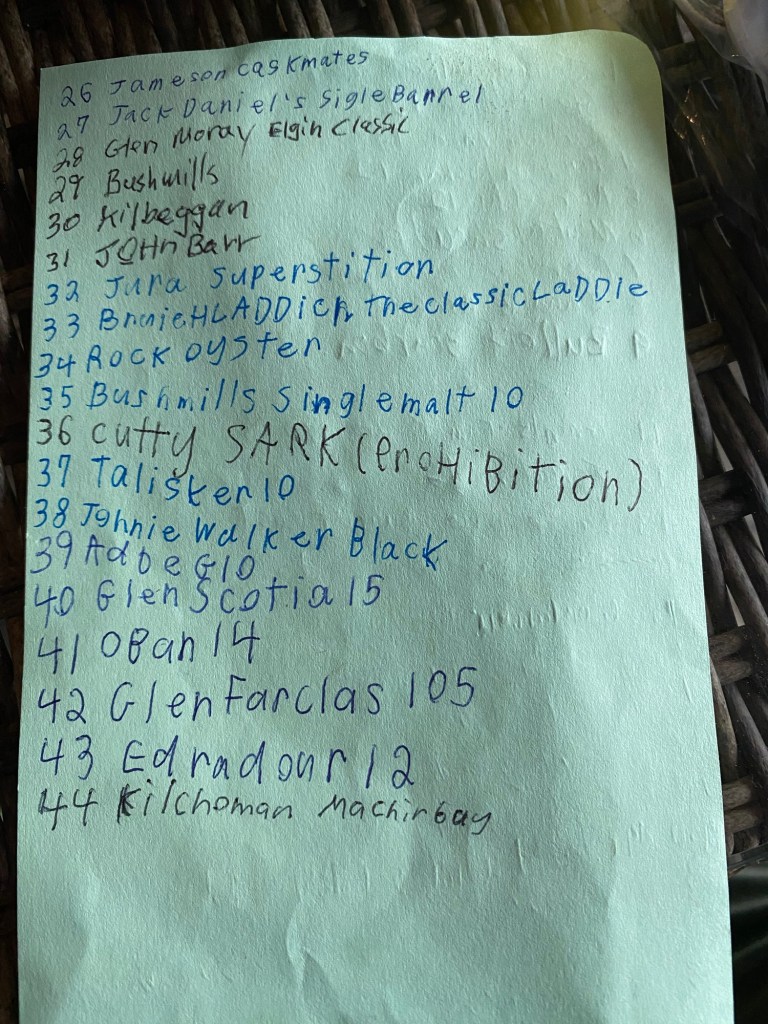 26 Jameson caskmates
27 Jack Daniel's sigle Barrel
28 Glen Moray Elgin Classic
29 Bushmills
30 Kilbeggan
31 JOHn Barr
32 Jura superstition
33 BruicHLADDich The classic LaDDIe
34 Rock oyster
35 Bushmills Singlemalt 10
36 cutty SARK (ProHiBition)
37 Talisker 10
38 Johnie Walker Black
39 Adbeg 10
40 Glen Scotia 15
41 OBan 14
42 GlenFarclas 105
43 Edradour 12
44 Kilchoman Machirbay